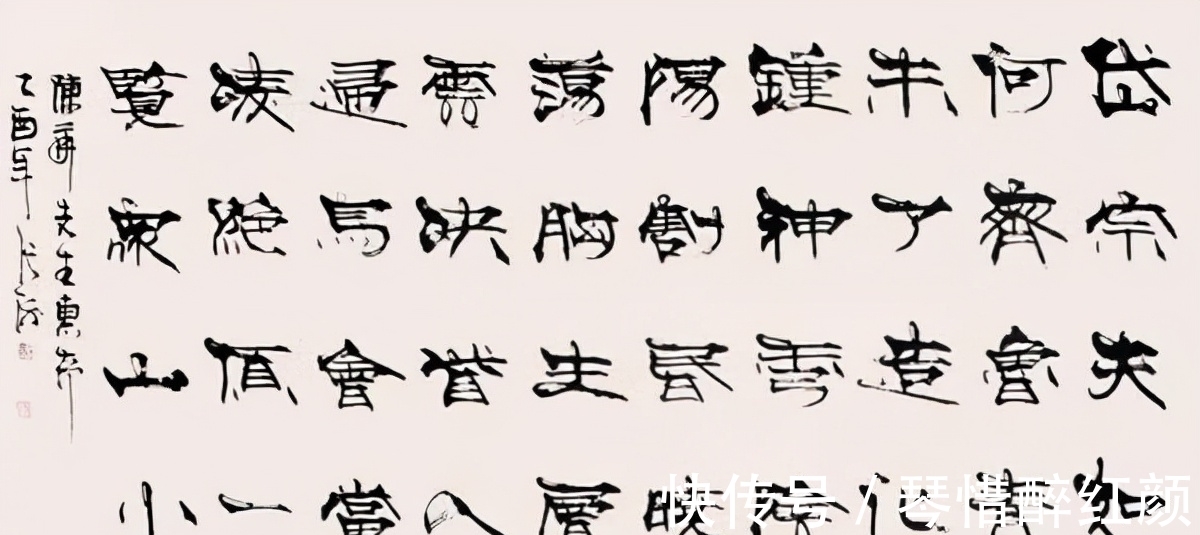 岱宗夫如
何齊魯青
未了造化
鍾神秀陰
陽割昏曉
蕩胸生層
雲決眥入
歸鳥會當
凌絕頂一
覽衆山小
陳 先生惠
乙酉年
快传号 / 琴惜醉红颜